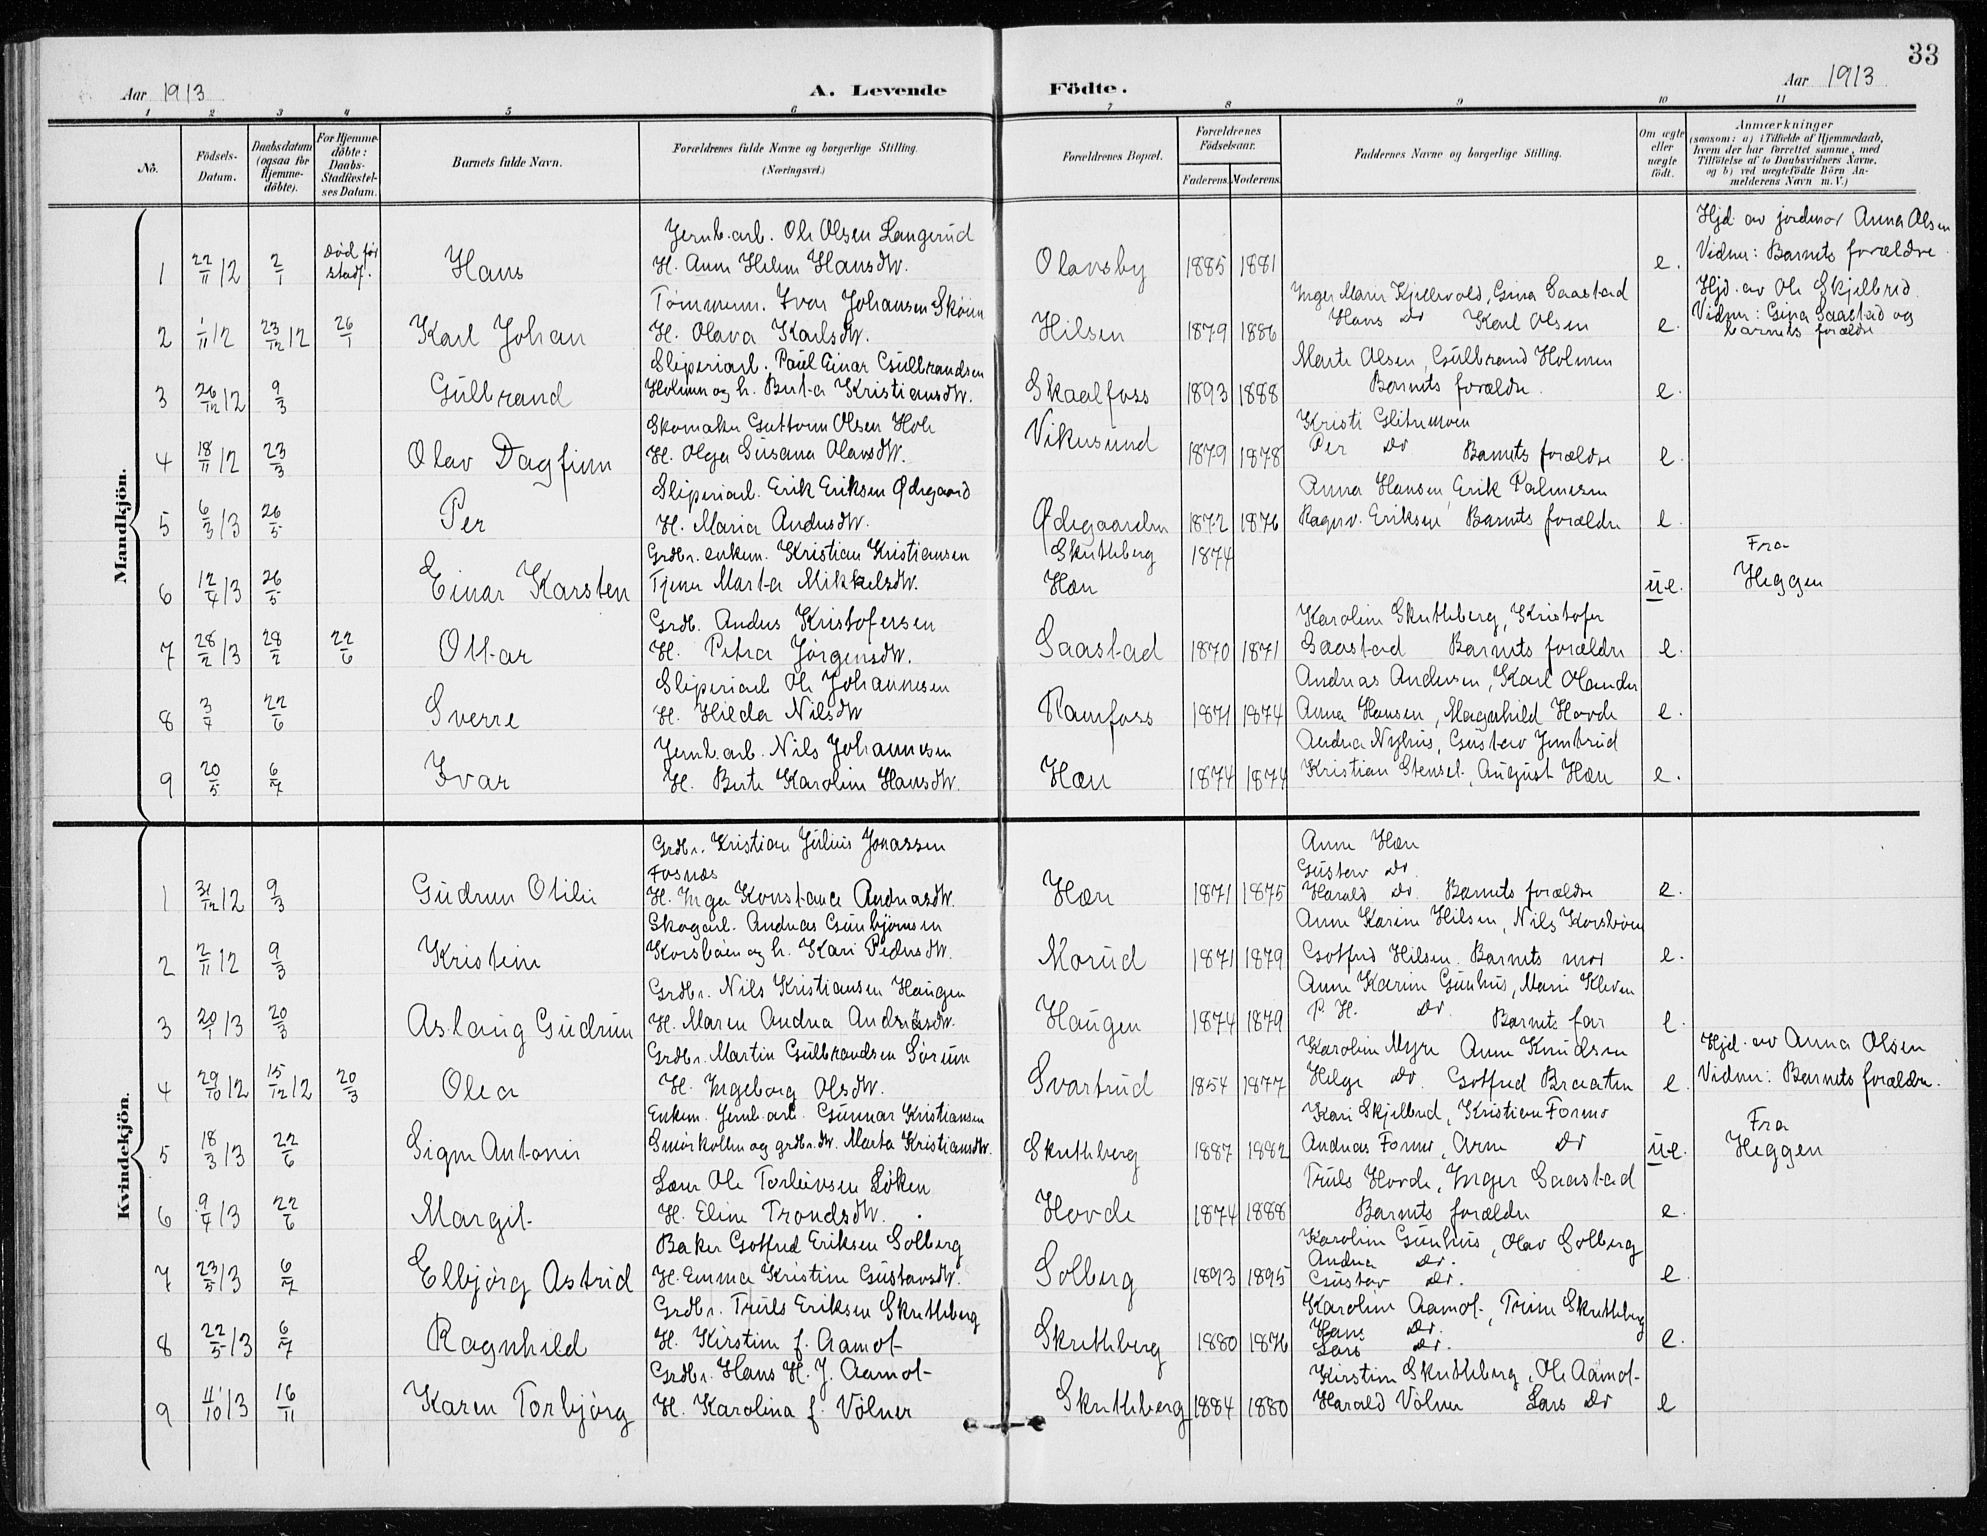 33
Aar 1913 A. Levende Födte. Aar 1913
1 2 3 4 5 6 7 8 9 10 11
No.
Födsels-Datum.
Daabsdatum (ogsaa for Hjemme-döbte).
For Hjemme-döbte: Daabs-Stadfæstel-ses Datum.
Barnets fulde Navn.
Forældrenes fulde Navne og borgerlige Stilling.
(Næringsvei.)
Forældrenes Bopæl.
Forældrenes Födselsaar.
Faderens. Moderens.
Faddernes Navne og borgerlige Stilling.
Om ægte eller uægte födt.
Anmærkninger
(saasom: a) i Tilfælde af Hjemmedaab,
hvem der har forrettet samme, med
Tilföielse af to Daabsvidners Navne,
og b) ved uægtefödte Börn An-
melderens Navn m. V.)
Mandkjön.
Jernb.arb. Ole Olsen Langerud Hjd av jordmor Anna Olsen
1 22/11 12 2/1 Död før stadf. Hans H. Anne Helene Hansdtr. Olavsby 1885 1881 e. Vidner: Barnets forældre.
Tømmerm. Ivar Johansen Skøien Inger Marie Kjellevold, Gina Saastad Hjd. av Ole Skjelbred
2 1/11 12 23/12 12 26/1 Karl Johan H. Olava Karlsdtr. Hilsen 1879 1886 Hans Do Karl Olsen e. Vidner: Gina Saastad og barnets forældre
Sliperiarb. Paul Einar Gulbrandsen Marte Olsen, Gulbrand Holmen
3 26/12 12 9/3 Gulbrand Holmen og h. Berta Kristiansdtr. Skaalfoss 1893 1888 Barnets forældre. e.
Skomaker Guttorm Olsen Hole Kristi Glitremoen
4 18/11 12 23/3 Olav Dagfinn H. Olga Susana Olavsdtr. Vikersund 1879 1878 Per Do Barnets forældre e.
Sliperiarb. Erik Eriksen Ødegaard Anna Hansen, Erik Palmesen
5 6/3 13 26/5 Per H. Maria Andersdtr. Ødegaarden 1872 1876 Ragnv. Eriksen Barnets forældre e.
Grdbr. enkem. Kristian Kristiansen Skuthberg 1874 Fra
6 12/4 13 26/5 Einar Karsten Tjener Marta Mikkelsdtr. Hæn u.e. Heggen
Grdb. Anders Kristofersen Karoline Skuthberg, Kristofer
7 28/2 13 28/2 22/6 Ottar H. Petra Jørgensdtr. Saastad 1870 1871 Saastad Barnets forældre e.
Sliperiarb Ole Johannesen Andreas Andersen, Karl Olander
8 3/4 22/6 Sverre H. Hilda Nilsdtr Ramfoss 1871 1874 Anna Hansen, Magnhild Hovde e.
Jernb.arb. Nils Johannesen Andrea Nyhus, Gustav Jontrud
9 20/5 6/7 Ivar H. Berte Karoline Hansdtr. Hæn 1874 1874 Kristian Stenset, August Hæn e.
Kvindekjön.
Grdbr. Kristian Julius Jonassen Anne Hæn
Fosnæs Gustav Do.
1 31/12 12 9/3 Gudrun Otilie H. Inga Konstance Andreasdtr. Hæn 1871 1875 Harald Do Barnets forældre e.
Skogarb. Andreas Gunbjørnsen Anne Karine Hilsen, Nils Korsbøen
2 2/11 12 9/3 Kristine Korsbøen og h. Kari Pedersdtr. Morud 1871 1879 Gotfred Hilsen. Barnets mor e.
Grdbr. Nils Kristiansen Haugen Anne Karine Gunhus, Marie Kleven
3 20/1 13 20/3 Aslaug Gudrun H. Maren Andrea Andréasdtr. Haugen 1874 1879 P. H. Do. Barnets far e.
Grdbr. Martin Gulbrandsen Sørum Karoline Myre Anne Knudsen Hjd. av Anna Olsen
4 29/10 12 15/12 12 20/3 Olea H. Ingeborg Olsdtr. Svartrud 1854 1877 Helge Do. Gotfred Braaten e Vidner: Barnets forældre.
Enkem. Jernb.arb. Gunnar Kristiansen Kari Skjelbred, Kristian Formo Fra
5 18/3 13 22/6 Signe Antonie Smørkollen og grdbr.dtr. Marta Kristiansdtr. Skuthberg 1887 1882 Andreas Formo, Arne Do u.e. Heggen
Lærer Ole Torleivsen Løken Truls Hovde, Inger Saastad
6 9/4 13 22/6 Margit H. Eline Trondsdtr. Hovde 1874 1888 Barnets forældre e.
Baker Gotfred Eriksen Solberg Karoline Gunhus, Olav Solberg
Andrea Do.
7 23/5 13 6/7 Elbjørg Astrid H. Emma Kristine Gustavsdtr. Solberg 1893 1895 Gustav Do. e
Grdbr. Truls Eriksen Skuthberg Karoline Aamot, Trine Skuthberg
Hans Do.
8 22/5 13 6/7 Ragnhild H. Kirstine f. Aamot Skuthberg 1880 1876 Lars Do. e.
Grdbr. Hans H. J. Aamot Kirstine Skuthberg, Ole Aamot
9 11/10 13 16/11 Karen Torbjørg H. Karolina f. Volner Skuthberg 1884 1880 Harald Volner Lars Do e